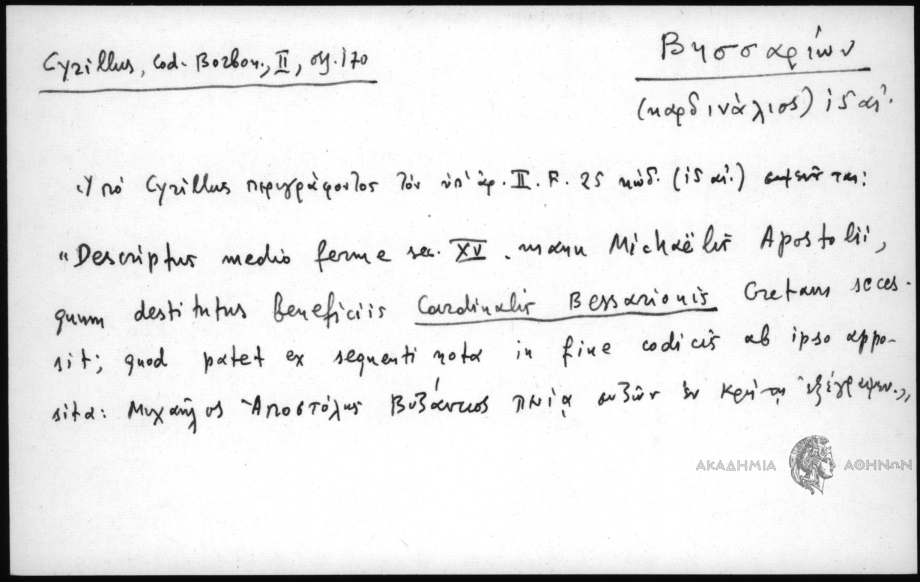 Cyrillus, Cod. Borbon., II, σ. 170
Βησσαρίων
(καρδινάλιος) ιε αἰ.
Ὑπό Cyrillus περιγράφοντος τόν ὑπ' ἀρ. II. F. 25 κώδ. (ιε αἰ.) σημειοῦται:
"Descriptus medio ferme sec. XV. manu Michaëlis Apostolii,
quum destitutus beneficiis Cardinalis Bessarionis Cretam seces-
sit; quod patet ex sequenti nota in fine codicis ab ipso appo-
sita: Μιχαῆλος Ἀποστόλης Βυζάντιος πενίᾳ συζῶν ἐν Κρήτῃ ἐξέγραψεν.,,
ΑΚΑΔΗΜΙΑ ΑΘΗΝΩΝ